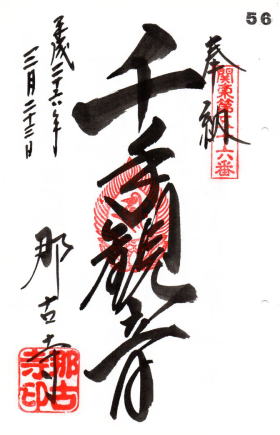 56
奉納
関東第五十六番
千手觀音
平成二十六年
三月二十三日
那古寺
那古寺印